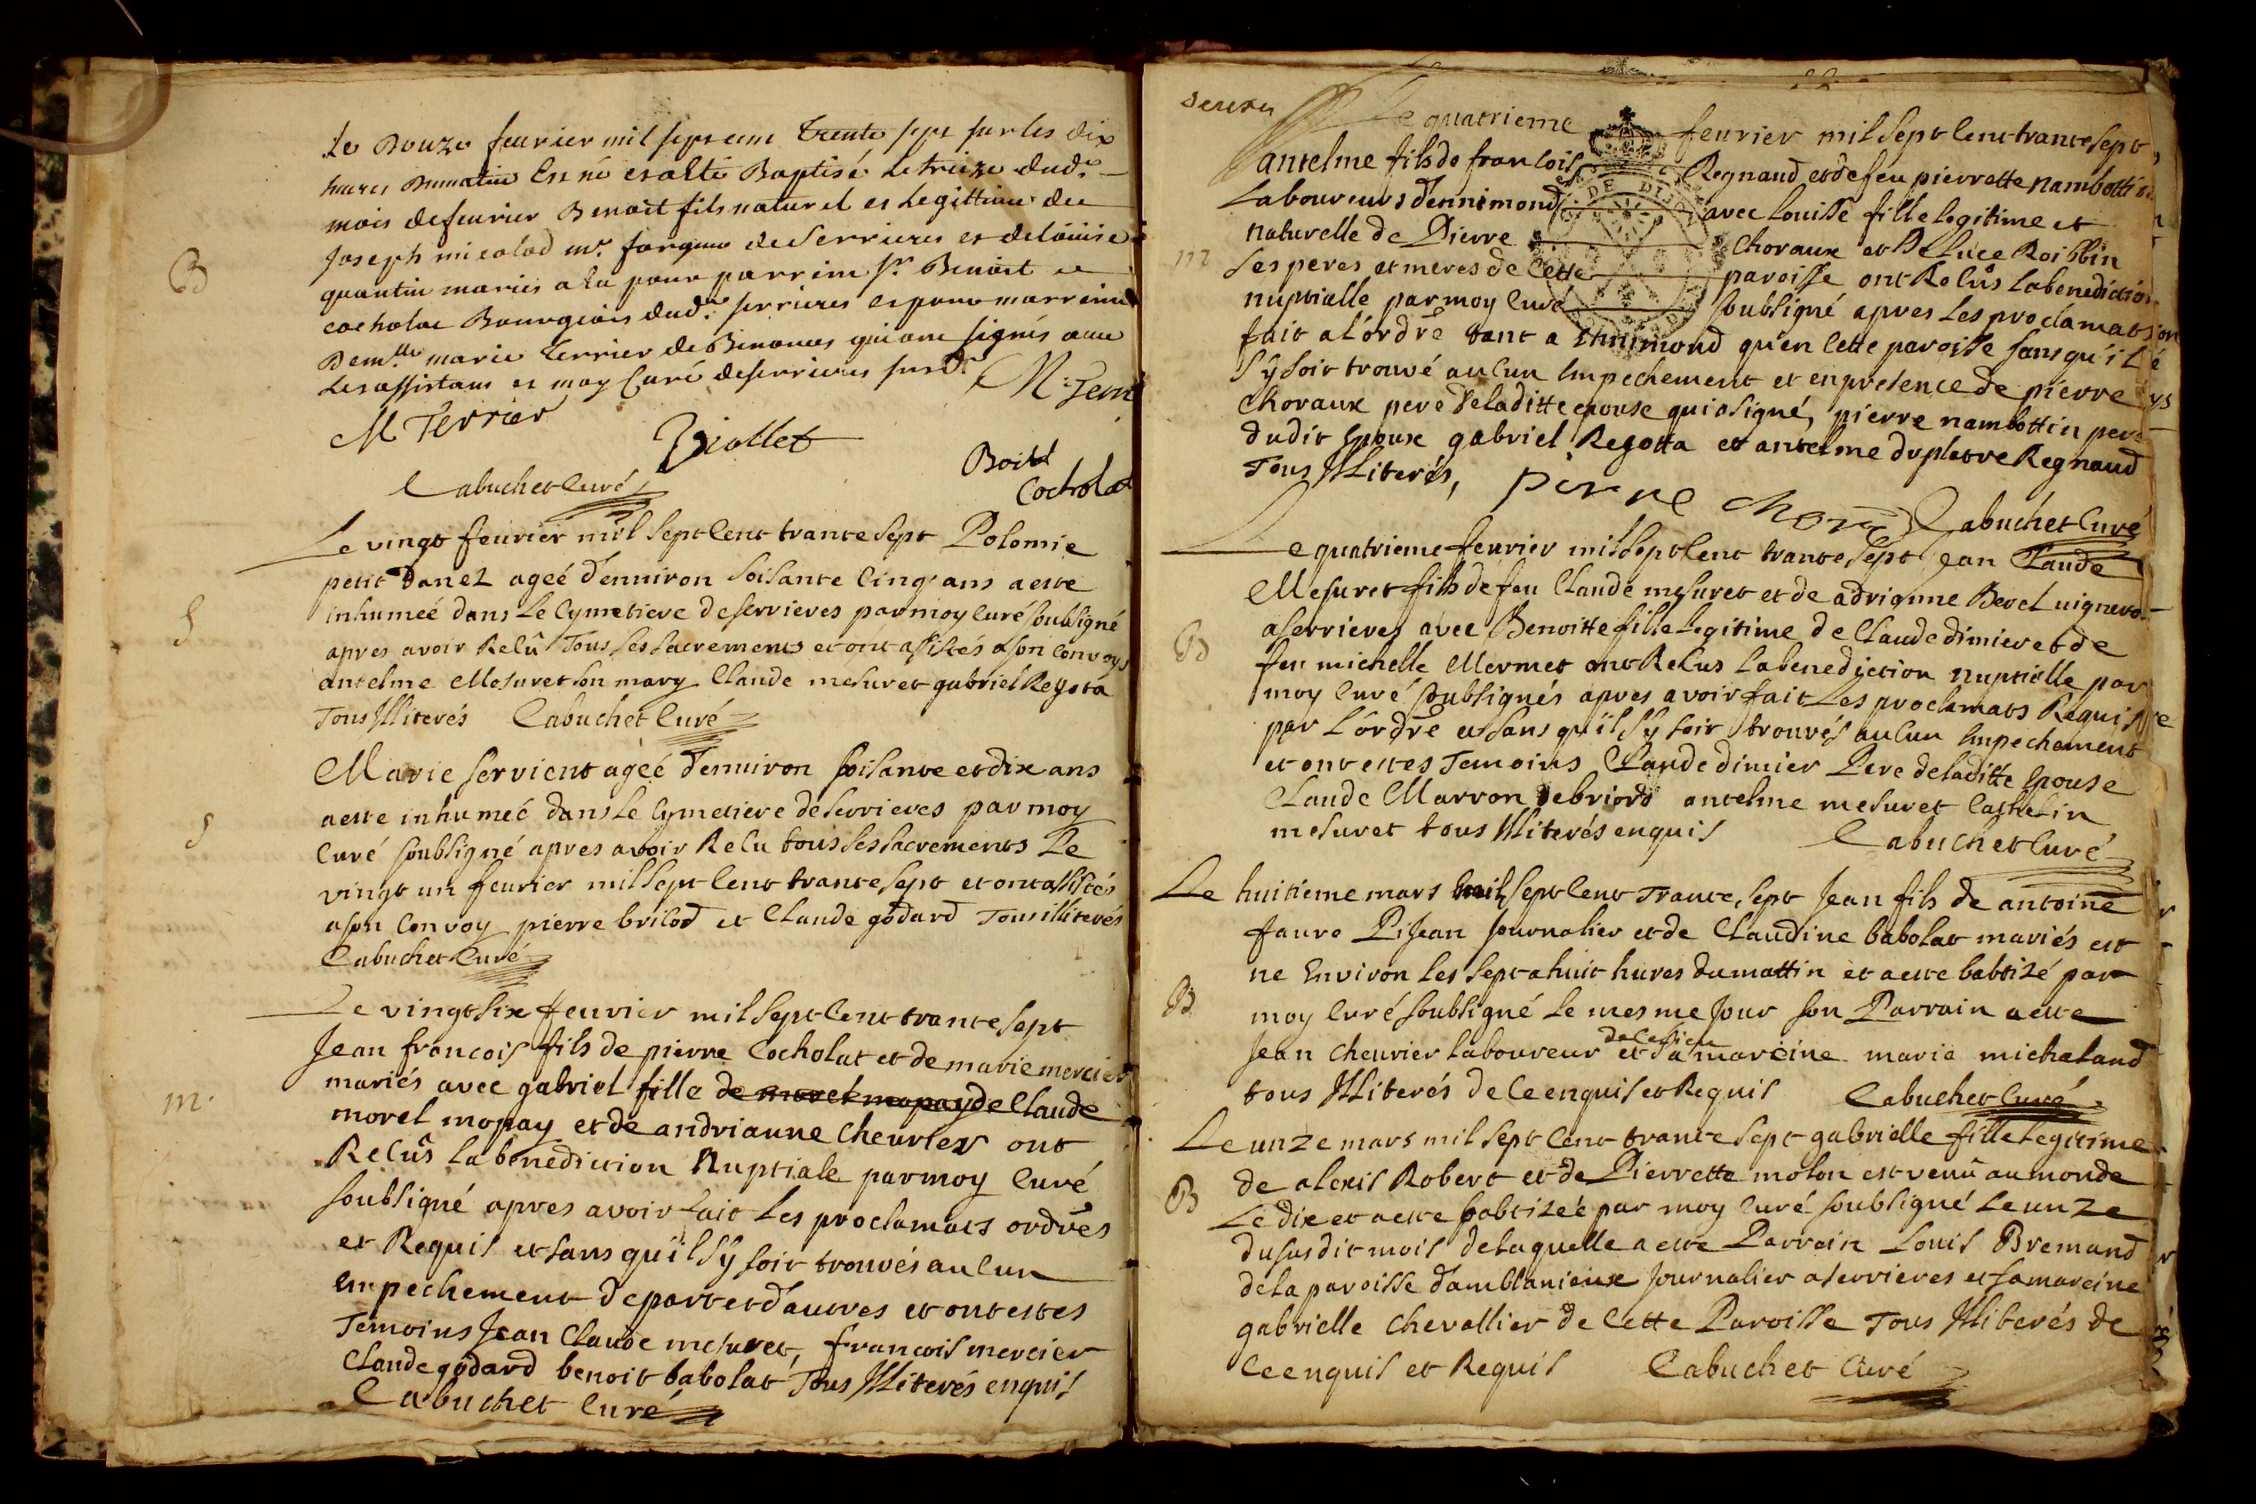 Le Douze feurier mil sept cent trente sept sur les dix
heures du matin Est né et a été Baptisé le treize dud.
mois de feurier Benoit fils naturel et Legittime de
Joseph micolod m.e de Serrieres et de Loüise
quantin mariés a eu pour parrein s.r Benoit
cocholat Bourgeois dud. serrieres et pour marreine
Dem.lle marie Terrier de qui ont signés auec
Les assistans et moy Curé de serrieres susd.
M Terrier
Viollet
Boit
Cocholat
Cabuchet Curé
B
Le vingt feurier mil sept Cent trante sept Polomie
petit Danez ageé d'enuiron soisante Cinq ans a este
inhumeé dans le Cymetiere de serrieres par moy Curé soubsigné
apres avoir Reçû Tous ses sacrements et ont assistés a son Convoys
antelme Mesuret son mary Claude mesuret gabriel Regota
Tous Illiterés Cabuchet Curé
S
Marie servient ageé d'enuiron soisante et dix ans
a este inhumeé dans le Cymetiere de serrieres par moy
Curé soubsigné apres avoir Reçu tous ses sacrements Le
vingt un feurier mil sept Cent trante sept et ont assistés
a son Convoy pierre brilod et Claude godard Tous illiterés
Cabuchet Curé
S
Le vingt six feurier mil sept Cent trante sept
Jean francois fils de pierre Cocholat et de marie mercier
mariés avec gabriel fille de morel mopay de Claude
morel mopay et de andrianne Cheurier ont
Reçûs la benediction Nuptiale par moy Curé
soubsigné apres avoir fait Les proclamats ordrés
et Requis et sans qu'il sy soit trouvés aucun
Empechement de part et d'autres et ont estes
Temoins Jean Claude mesuret, francois mercier
Claude godard benoit babolat Tous Illiterés enquis
Cabuchet Curé
m.
deuxe
Le quatrieme feurier mil sept Cent trante sept
antelme fils de francois Regnaud et de feu pierrette nambottin
Laboureurs d'ennimond avec Louisse fille legitime et
naturelle de Pierre Choraux et De Luce Roibbin
ses peres et meres de Cette paroisse ont Reçûs la benediction
nuptialle par moy Curé soubsigné apres Les proclamations
fait a L'ordre tant a Ennimond qu'en Cette paroisse sans qu'il
s'y soit trouvé aucun Empechement et en presence de pierre
Choraux pere de laditte epouse qui a signé, pierre nambottin pere
dudit Epoux gabriel Regotta et antelme duplatre Regnaud
Tous Illiterés, pierre Chora Cabuchet Curé
m
Le quatrieme feurier mil sept Cent trante sept Jean Claude
Mesuret fils de feu Claude mesuret et de adrianne Berel uigneron
a serrieres avec Benoitte fille legitime de Claude dimier et de
feu michelle Mermet ont Reçus la benediction nuptialle par
moy Curé soubsignés apres avoir fait Les proclamats Requis
par L'ordre et sans qu'il s'y soit trouvés aucun Empechement
et ont estes Temoins Claude dimier Pere de laditte Epouse
Claude Marron de briord antelme mesuret Cathelin
mesuret tous Illiterés enquis Cabuchet Curé
Le huitieme mars mil sept Cent Trante sept Jean fils de antoine
faure Journalier et de Claudine babolat mariés est
ne Environ les sept a huit hures du mattin et a este babtizé par
moy Curé soubsigné le mesme Jour son Parrain a este
Jean Cheurier laboureur et sa mareine marie michalaud
tous Illiterés de Ce enquis et Requis Cabuchet Curé
B
Le unze mars mil sept Cent trante sept gabrielle fille Legitime
de alexis Robert et de Pierrette molon est venû au monde
Le dix et a este babtizeé par moy Curé soubsigné Le unze
du susdit mois de laquelle a este Parrain Louis Bremand
de la paroisse d'amblanieux Journalier a serrieres et sa mareine
gabrielle Chevallier de Cette Paroisse Tous Illiterés de
Ce enquis et Requis Cabuchet Curé
B